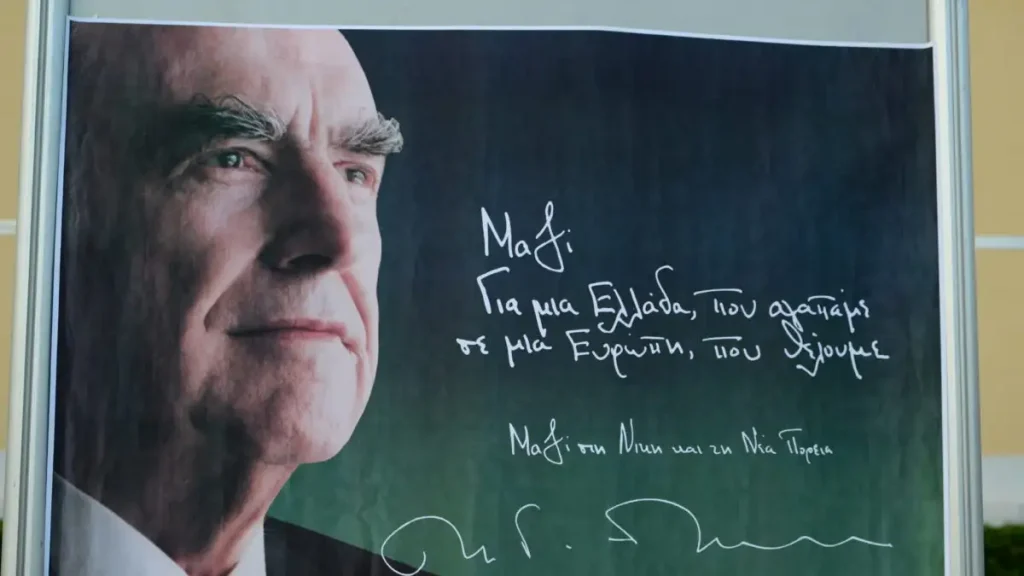 Μαζί
Για μια Ελλάδα, που αγαπάμε
σε μια Ευρώπη, που θέλουμε
Μαζί στη Νίκη και τη Νέα Πορεία